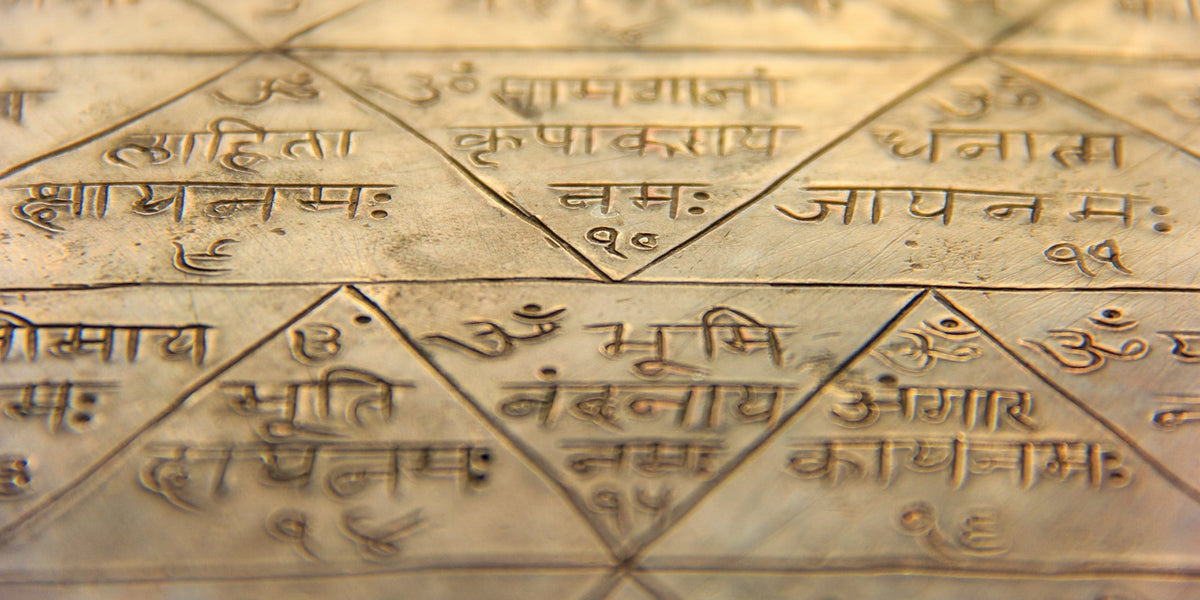 ॐ
लाहिता
क्षायनमः
९
ॐ सामगानां
कृपाकराय
नमः
१०
ॐ
धनात्म
जायनमः
ॐ
भूति
दायनमः
१४
ॐ भूमि
नंदनाय
नमः
१५
ॐ
अंगार
कायनमः
१६
ॐ